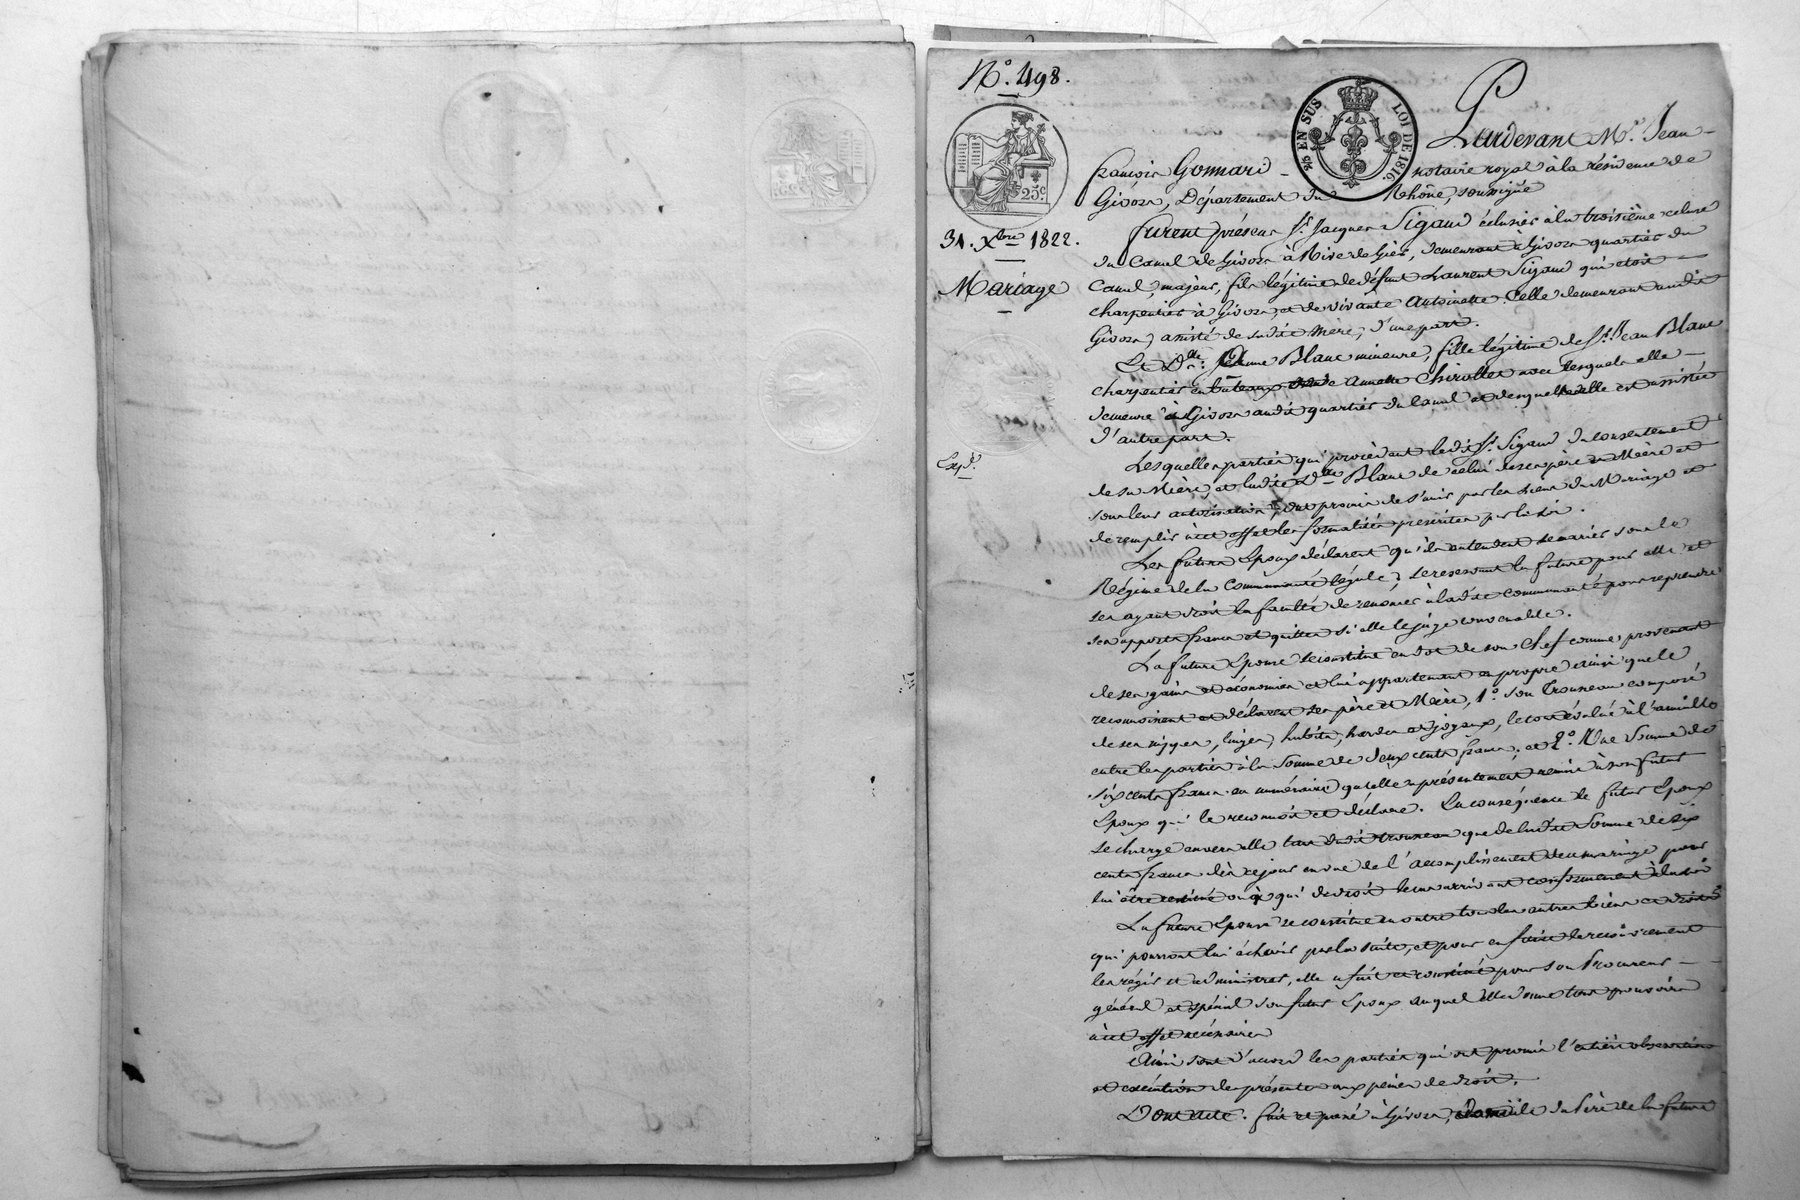 N.° 498.
25 EN SUS LOI DE 1816.
25c.
31. Xbre 1822.
Mariage
Exp.
Pardevant Me. Jean
françois Gonnard notaire royal à la résidence de
Givors, Département du Rhône, soussigné
furent présens Sr. Jacques Sigaud éclusier à la troisième écluse
du Canal de Givors à Rive de Gier, demeurant à Givors quartier du
Canal, majeur, fils légitime de défunt Laurent Sigaud qui étoit
charpentier à Givors, et de vivante Antoinette Celle demeurant audit
Givors, assisté de sadite Mère, d'une part.
Et Dlle. Anne Blanc mineure, fille légitime de Sr. Jean Blanc
charpentier en bateaux et de Annette Chirollet avec lesquels elle
demeure à Givors audit quartier du Canal et desquels elle est assistée
d'autre part.
Lesquelles parties qui procèdent ledit Sr. Sigaud du consentement
de sa Mère, et ladite Dlle Blanc de celui de ses père et Mère et
sous leur autorisation, ont promis de s'unir par les liens du Mariage et
de remplir à cet effet les formalités prescrites par la loi.
Les futurs Epoux déclarent qu'ils entendent se marier sous le
Régime de la Communauté légale, se reservant la future pour elle et
ses ayant droit la faculté de renoncer à ladite communauté pour reprendre
ses apports francs et quittes si elle le juge convenable.
La future Epouse se constitue en dot de son Chef comme provenant
de ses gains et économies et lui appartenant en propre ainsi que le
reconnoissent et déclarent ses père et Mère, 1.° son Trousseau composé
de ses nippes, linges, habits, hardes et joyaux, le tout évalué à l'amiable
entre les parties à la Somme de deux cents francs; et 2.° Une Somme de
six cents francs en numéraire qu'elle a présentement remis à son futur
Epoux qui le reconnoit et déclare. En conséquence le futur Epoux
se charge envers elle tant dudit trousseau que de ladite Somme de six
cents francs dès ce jour en vue de l'accomplissement du mariage pour
lui être restitué ou à qui de droit le cas arrivant conformément à la loi
La future Epouse se constitue en outre tous les autres biens et droits
qui pourront lui échevir par la suite, et pour en faire le recouvrement
les régir et administrer, elle a fait et constitué pour son Procureur
général et spécial son futur Epoux auquel elle donne tous pouvoirs
à cet effet nécessaires
Ainsi sont d'accord les parties qui ont promis l'entière observation
et exécution des présentes aux peines de droit.
Dont acte. fait et passé à Givors, domicile du Père de la future